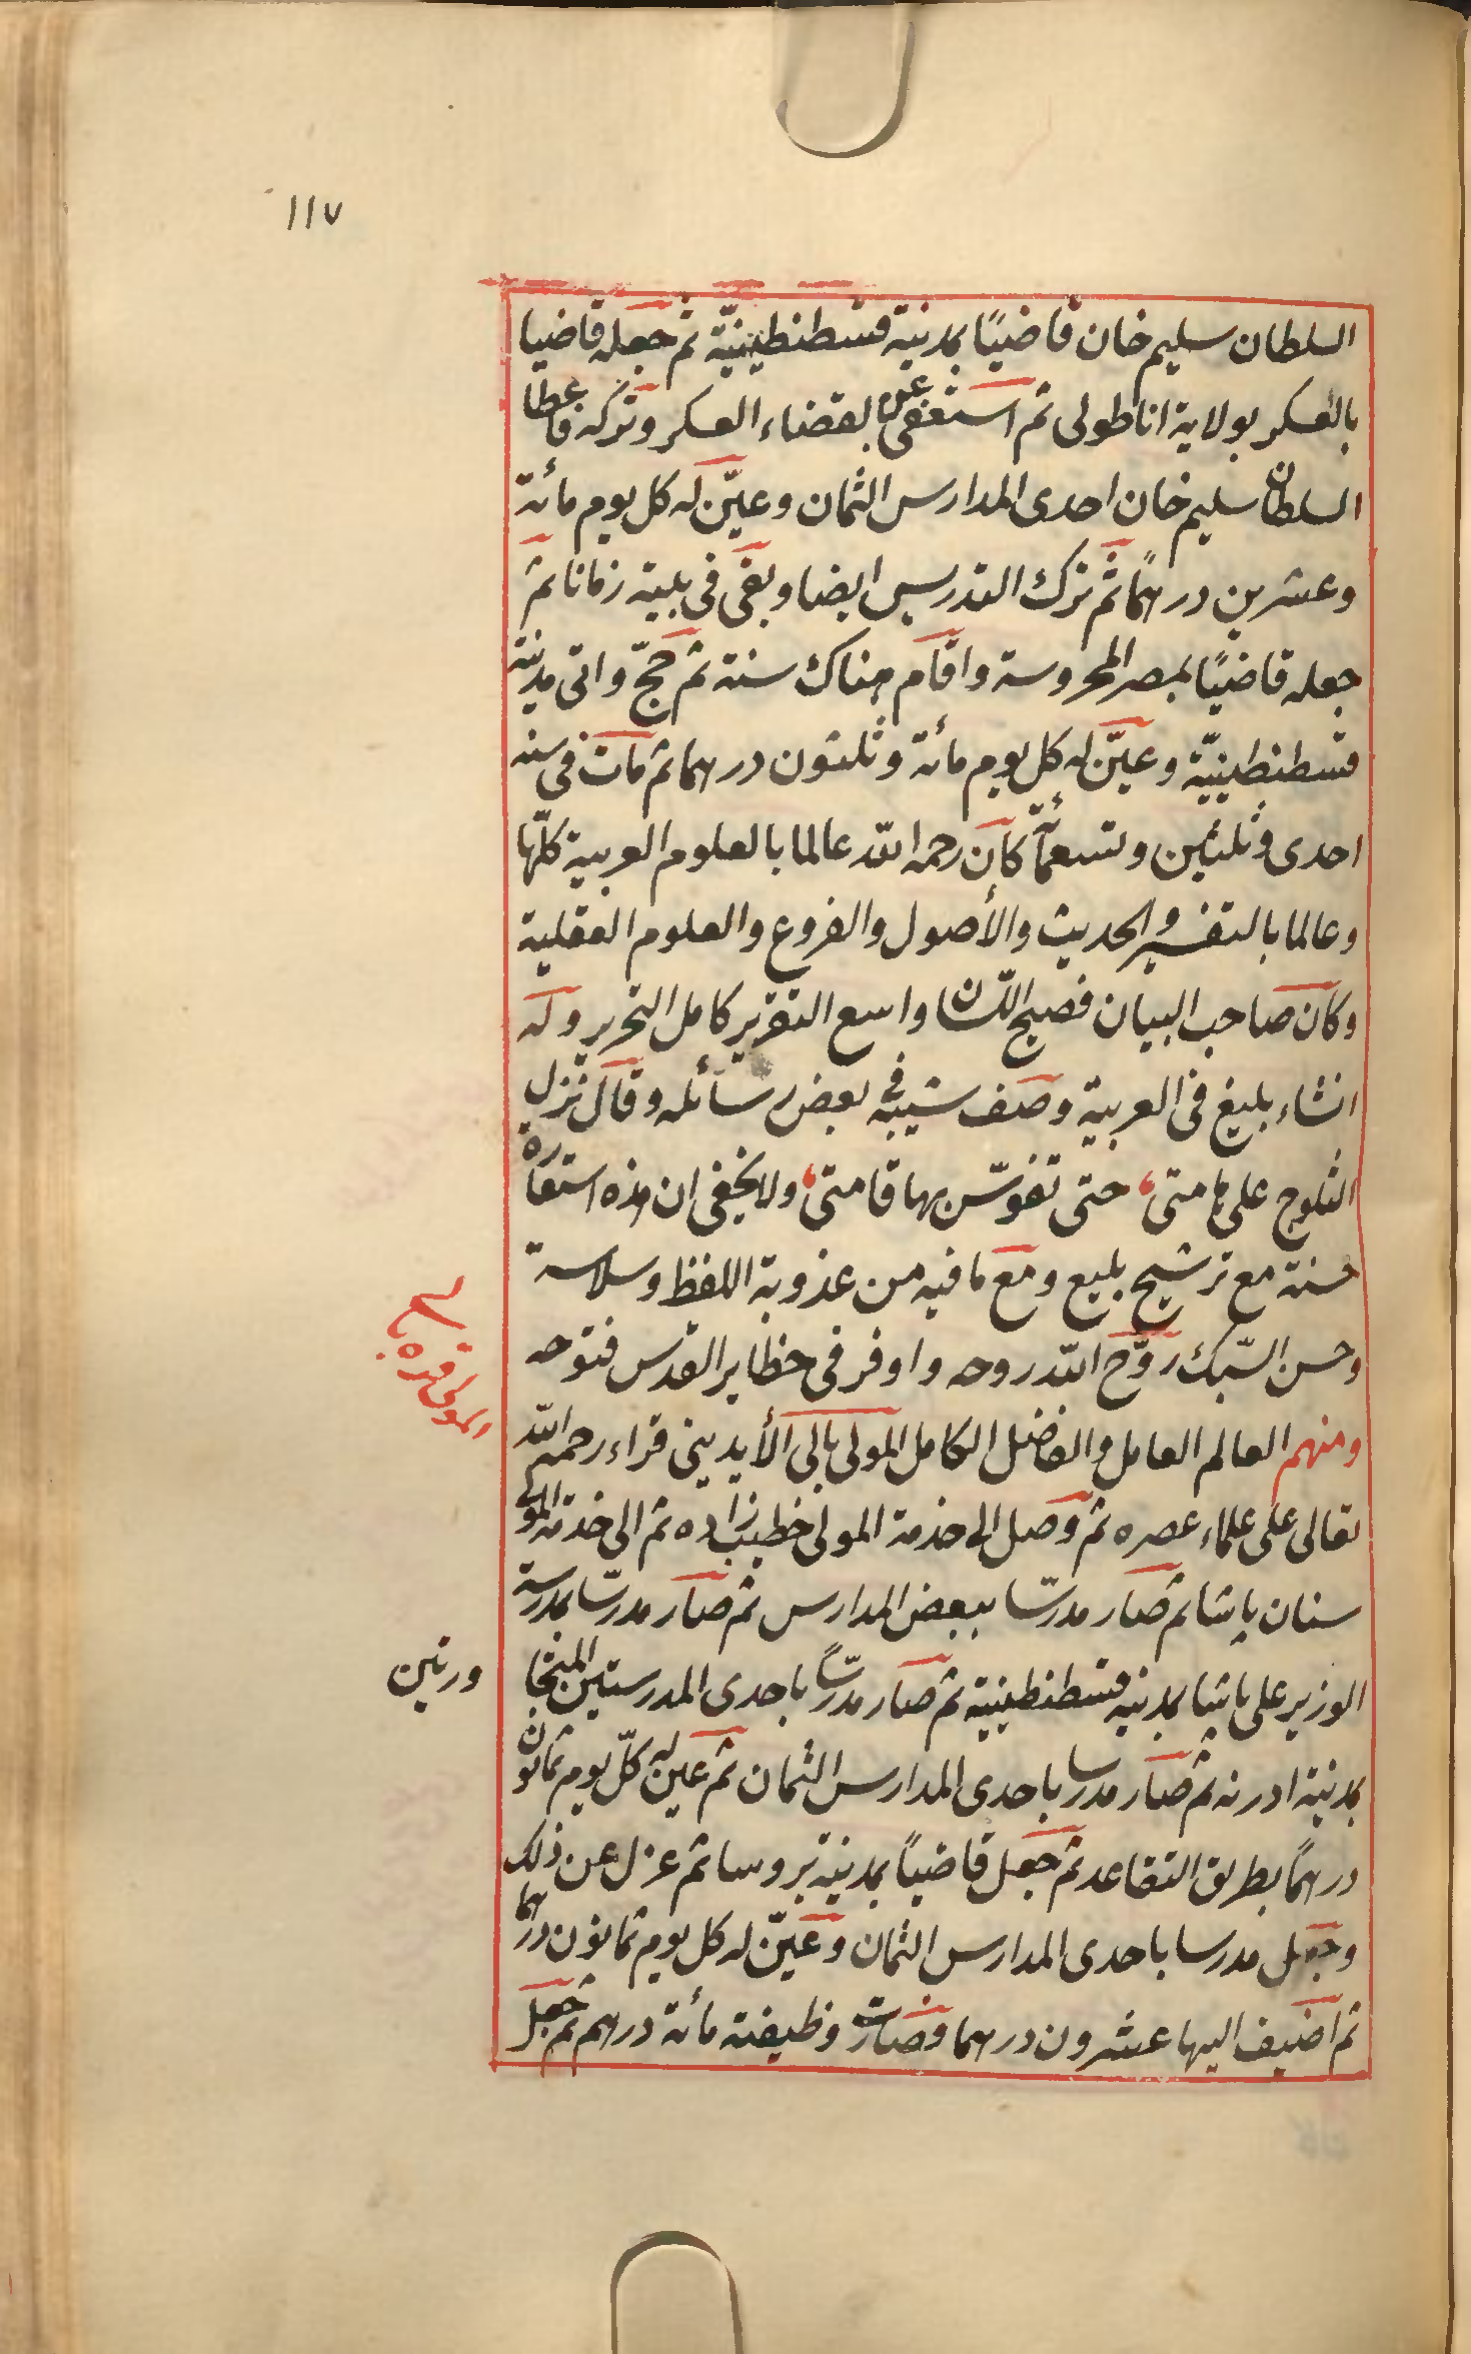 ١١٧
السلطان سليم خان قاضيًا بمدينة قسطنطينيّة ثم جعله قاضيا
بالعسكر بولاية اناطولى ثم استعفى عن القضاء العسكر وتركه فاعطا
السلطان سليم خان احدى المدارس الثمان وعيّن له كل يوم مائة
وعشرين درهمًا ثم ترك التدريس ايضا وبقى فى بليته زمانا ثم
جعله قاضيًا بمصر المحروسة واقام هناك سنة ثم حجّ واتى مدينة
قسطنطينيّة وعيّن له كل يوم مائة وثلثون درهما ثم مات فى سنه
احدى وثلثين وتسعمائة كان رحمه الله عالما بالعلوم العربية كلّها
وعالما بالتفسير والحديث والأصول والفروع والعلوم العقلية
وكان صاحب البيان فصيح اللسان واسع التقرير كامل التحرير وله
انشاء بليغ فى العربية وصف شيبه فى بعض رسائله وقال نزل
الثلوج على هامتى، حتى تقوّس بها قامتى، ولا يخفى ان هذه استعاره
حسنة مع ترشيح بليغ ومع ما فيه من عذوبة اللفظ وسلاسة
وحسن السّبك روّح الله روحه واوفر فى حظاير القدس فتوحه
ومنهم العالم العامل والفاضل الكامل المولى بالى الأيدينى قراء رحمه الله
تعالى على علماء عصره ثم وصل الى خدمة المولى خطيب زاده ثم الى خدمة المولى
سنان پاشا ثم صار مدرسّا ببعض المدارس ثم صار مدرسّا بمدرسة
الوزير على پاشا بمدينه قسطنطينية ثم صار مدرسّاً باحدى المدرستين المتجا
بمدينة ادرنه ثم صار مدرسا باحدى المدارس الثمان ثم عين له كلّ يوم ثمانون
درهمًا بطريق التقاعد ثم جعل قاضياً بمدينة بروسا ثم عزل عن ذلك
وجعل مدرسا باحدى المدارس الثمان وعيّن له كل يوم ثمانون درهما
ثم اضيف اليها عشرون درهما وصارت وظيفته مائة درهم ثم جعل
المولى قره بالى
ورتين